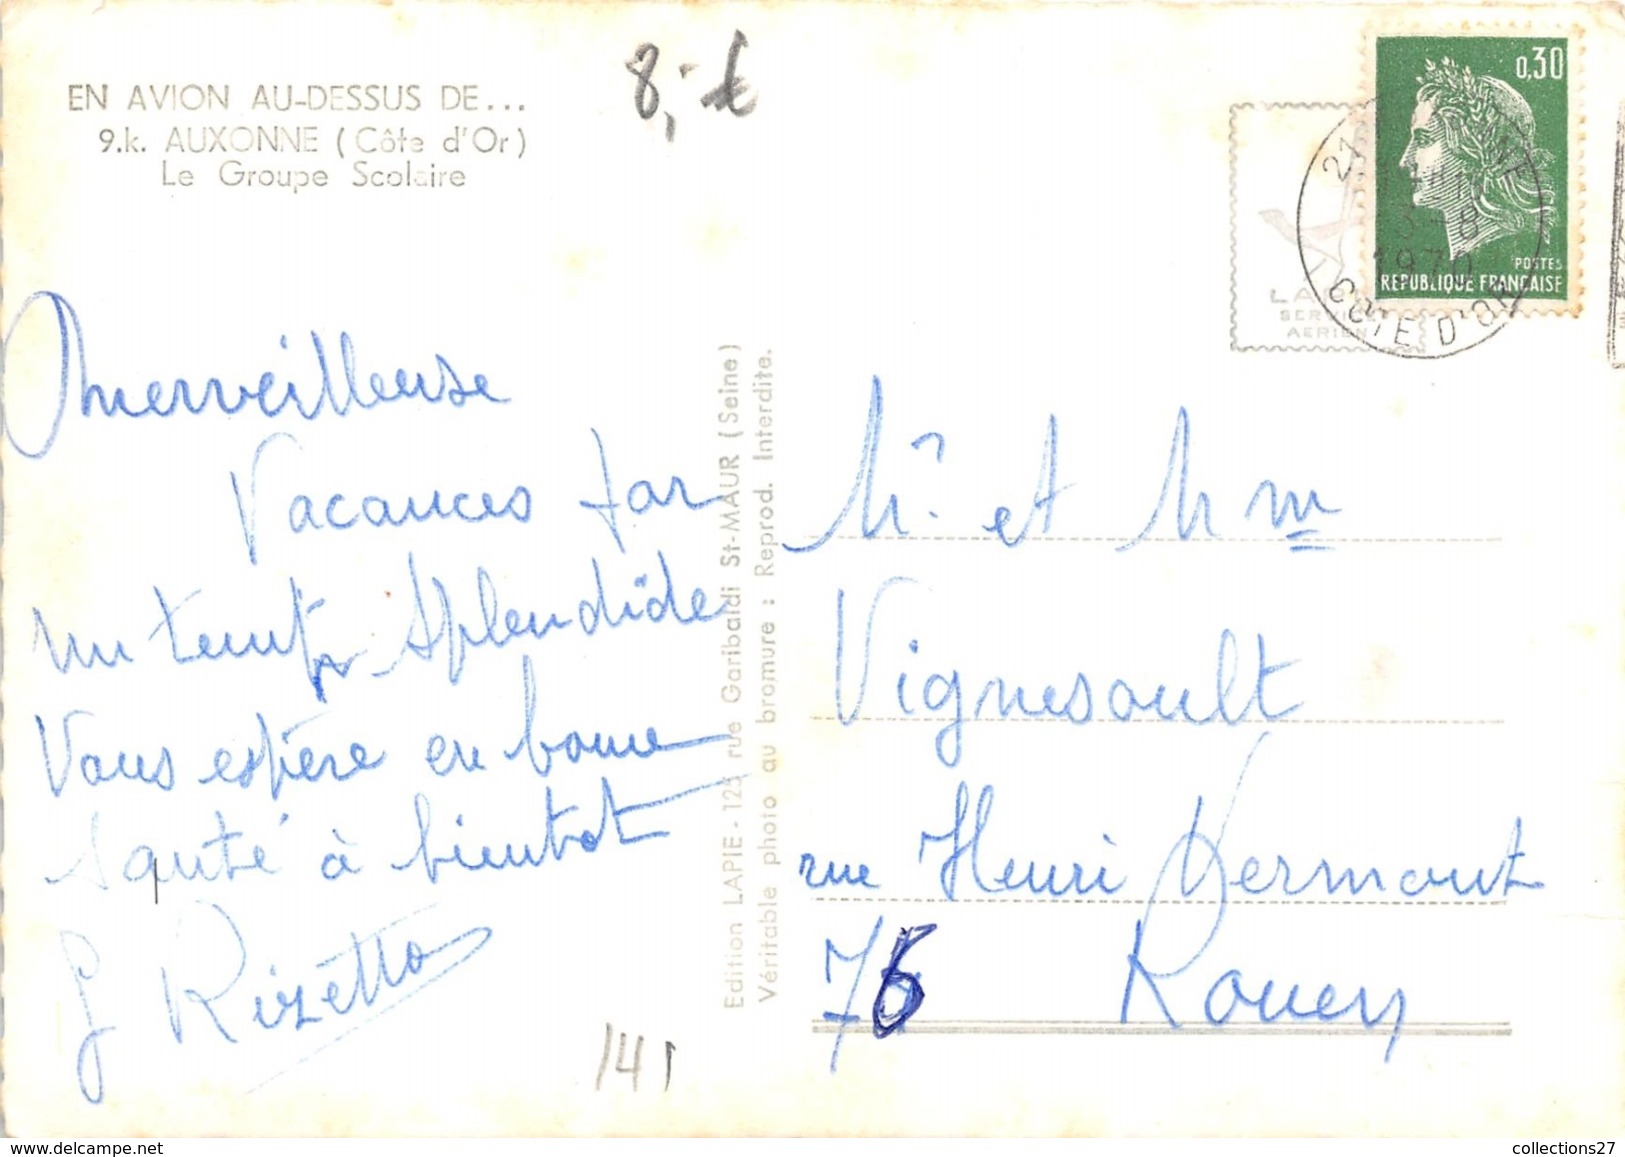 EN AVION AU-DESSUS DE...
9.k. AUXONNE (Côte d'Or)
Le Groupe Scolaire
8,-€
0,30
POSTES
REPUBLIQUE FRANÇAISE
21
NNE
3-8
1970
COTE D'OR
SERVICE
AERIEN
Merveilleuse
Vacances par
un temps splendide
Vous espère en bonne
santé à bientot
J Rizetto
Edition LAPIE - 125 rue Garibaldi St-MAUR (Seine)
Véritable photo au bromure : Reprod. Interdite.
Mr et Mme
Vignesoult
rue Henri Vermont
76 Rouen
141
delcampe.net
collections27